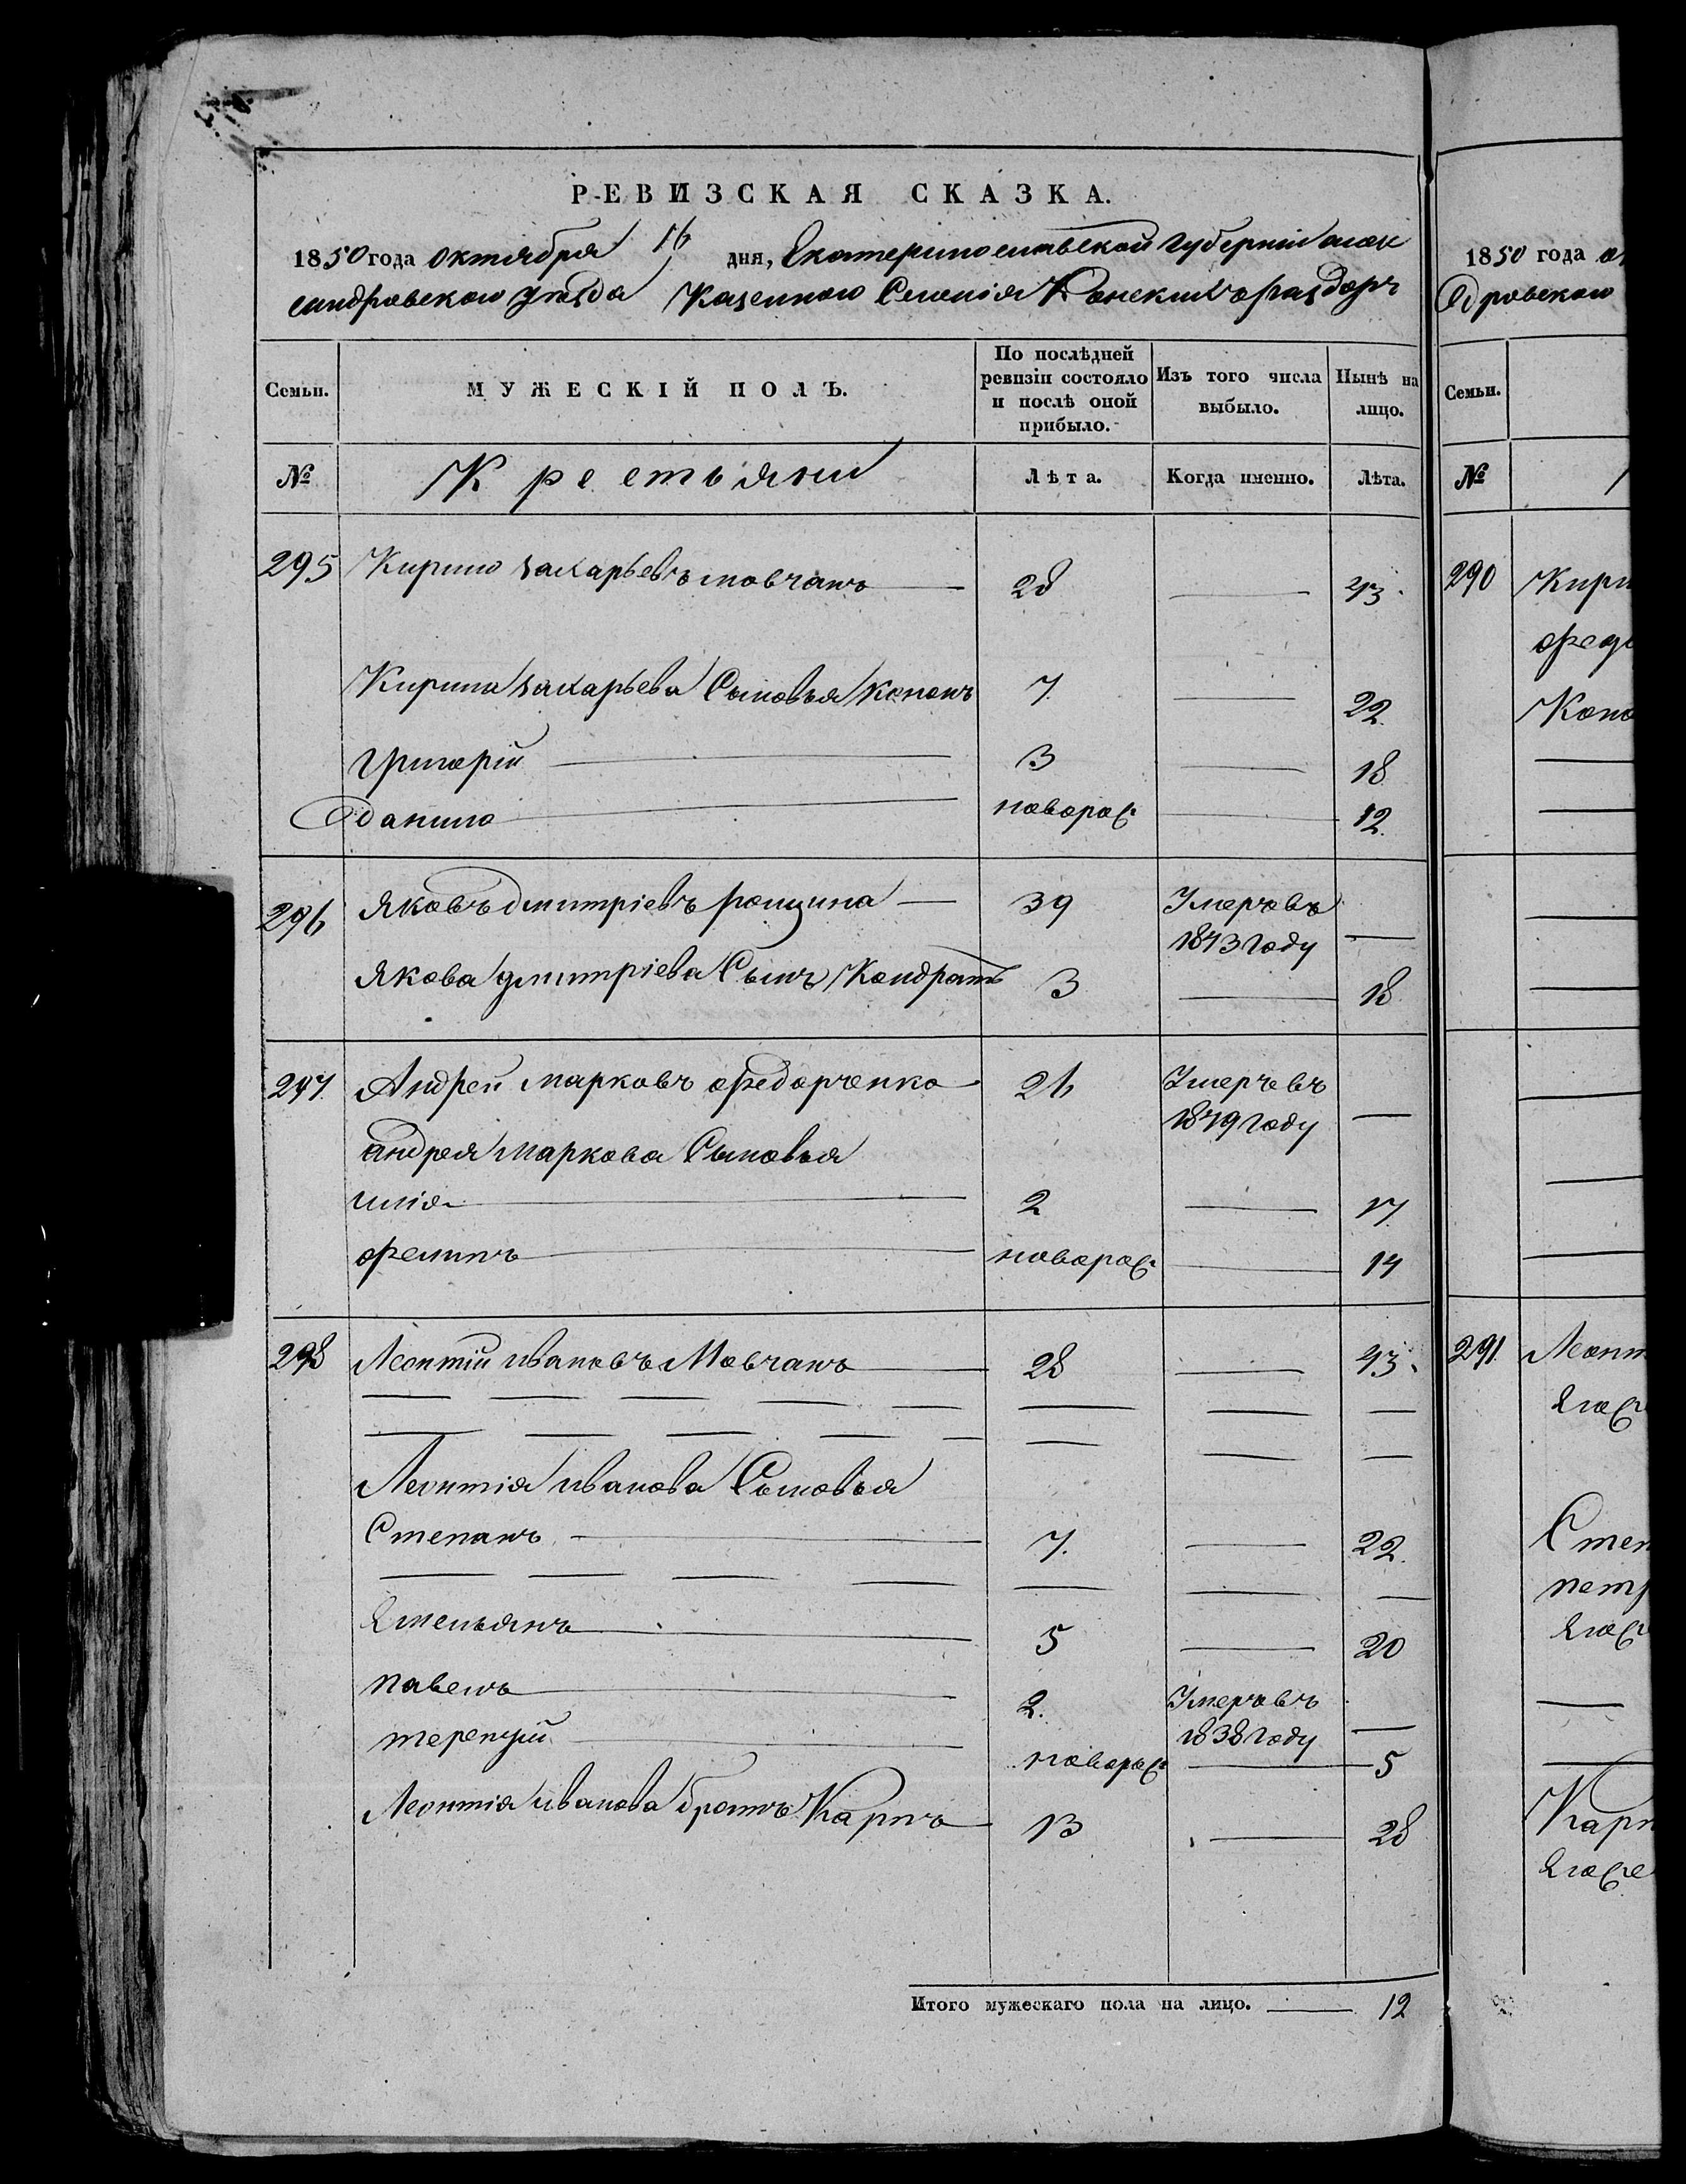 РЕВИЗСКАЯ СКАЗКА.
1850 года октября 16 дня, Екатеринославской губернии Алек
сандровского уезда Казенного Селенія Конскихъ раздоръ
Семьи. МУЖЕСКІЙ ПОЛЪ. По послѣдней ревизіи состояло и послѣ оной прибыло. Изъ того числа выбыло. Нынѣ на лицо.
№ Крестьяни Лѣта. Когда именно. Лѣта.
295 Кирило захарьевъ мовчанъ 28 — 43
Кирила захарьева Сыновья Кононъ 7. — 22.
григорій 3 — 18
данило новорож: — 12.
296 Яковъ дмитріевъ рощина 39 Умеръ въ 1843 году —
Якова дмитріева Сынъ Кондратъ 3 — 18
297. Андрей марковъ федорченко 26 Умеръ въ 1849 году —
андрея маркова Сыновья
илія 2 — 17.
филипъ новорож: — 14
298 Леонтій ивановъ Мовчанъ 28 — 43
Леонтія иванова Сыновья
Степанъ 7. — 22.
Емельянъ 5 — 20
павелъ 2. Умеръ въ 1838 году —
терентій новорож: — 5
Леонтія иванова братъ Карпъ 13 — 28
Итого мужескаго пола на лицо. — 12
1850 года ок
дровского
Семьи.
№
290 Кири
федо
Коно
291. Леонт
Его же
Степ
петр
Его же
Карп
Его же